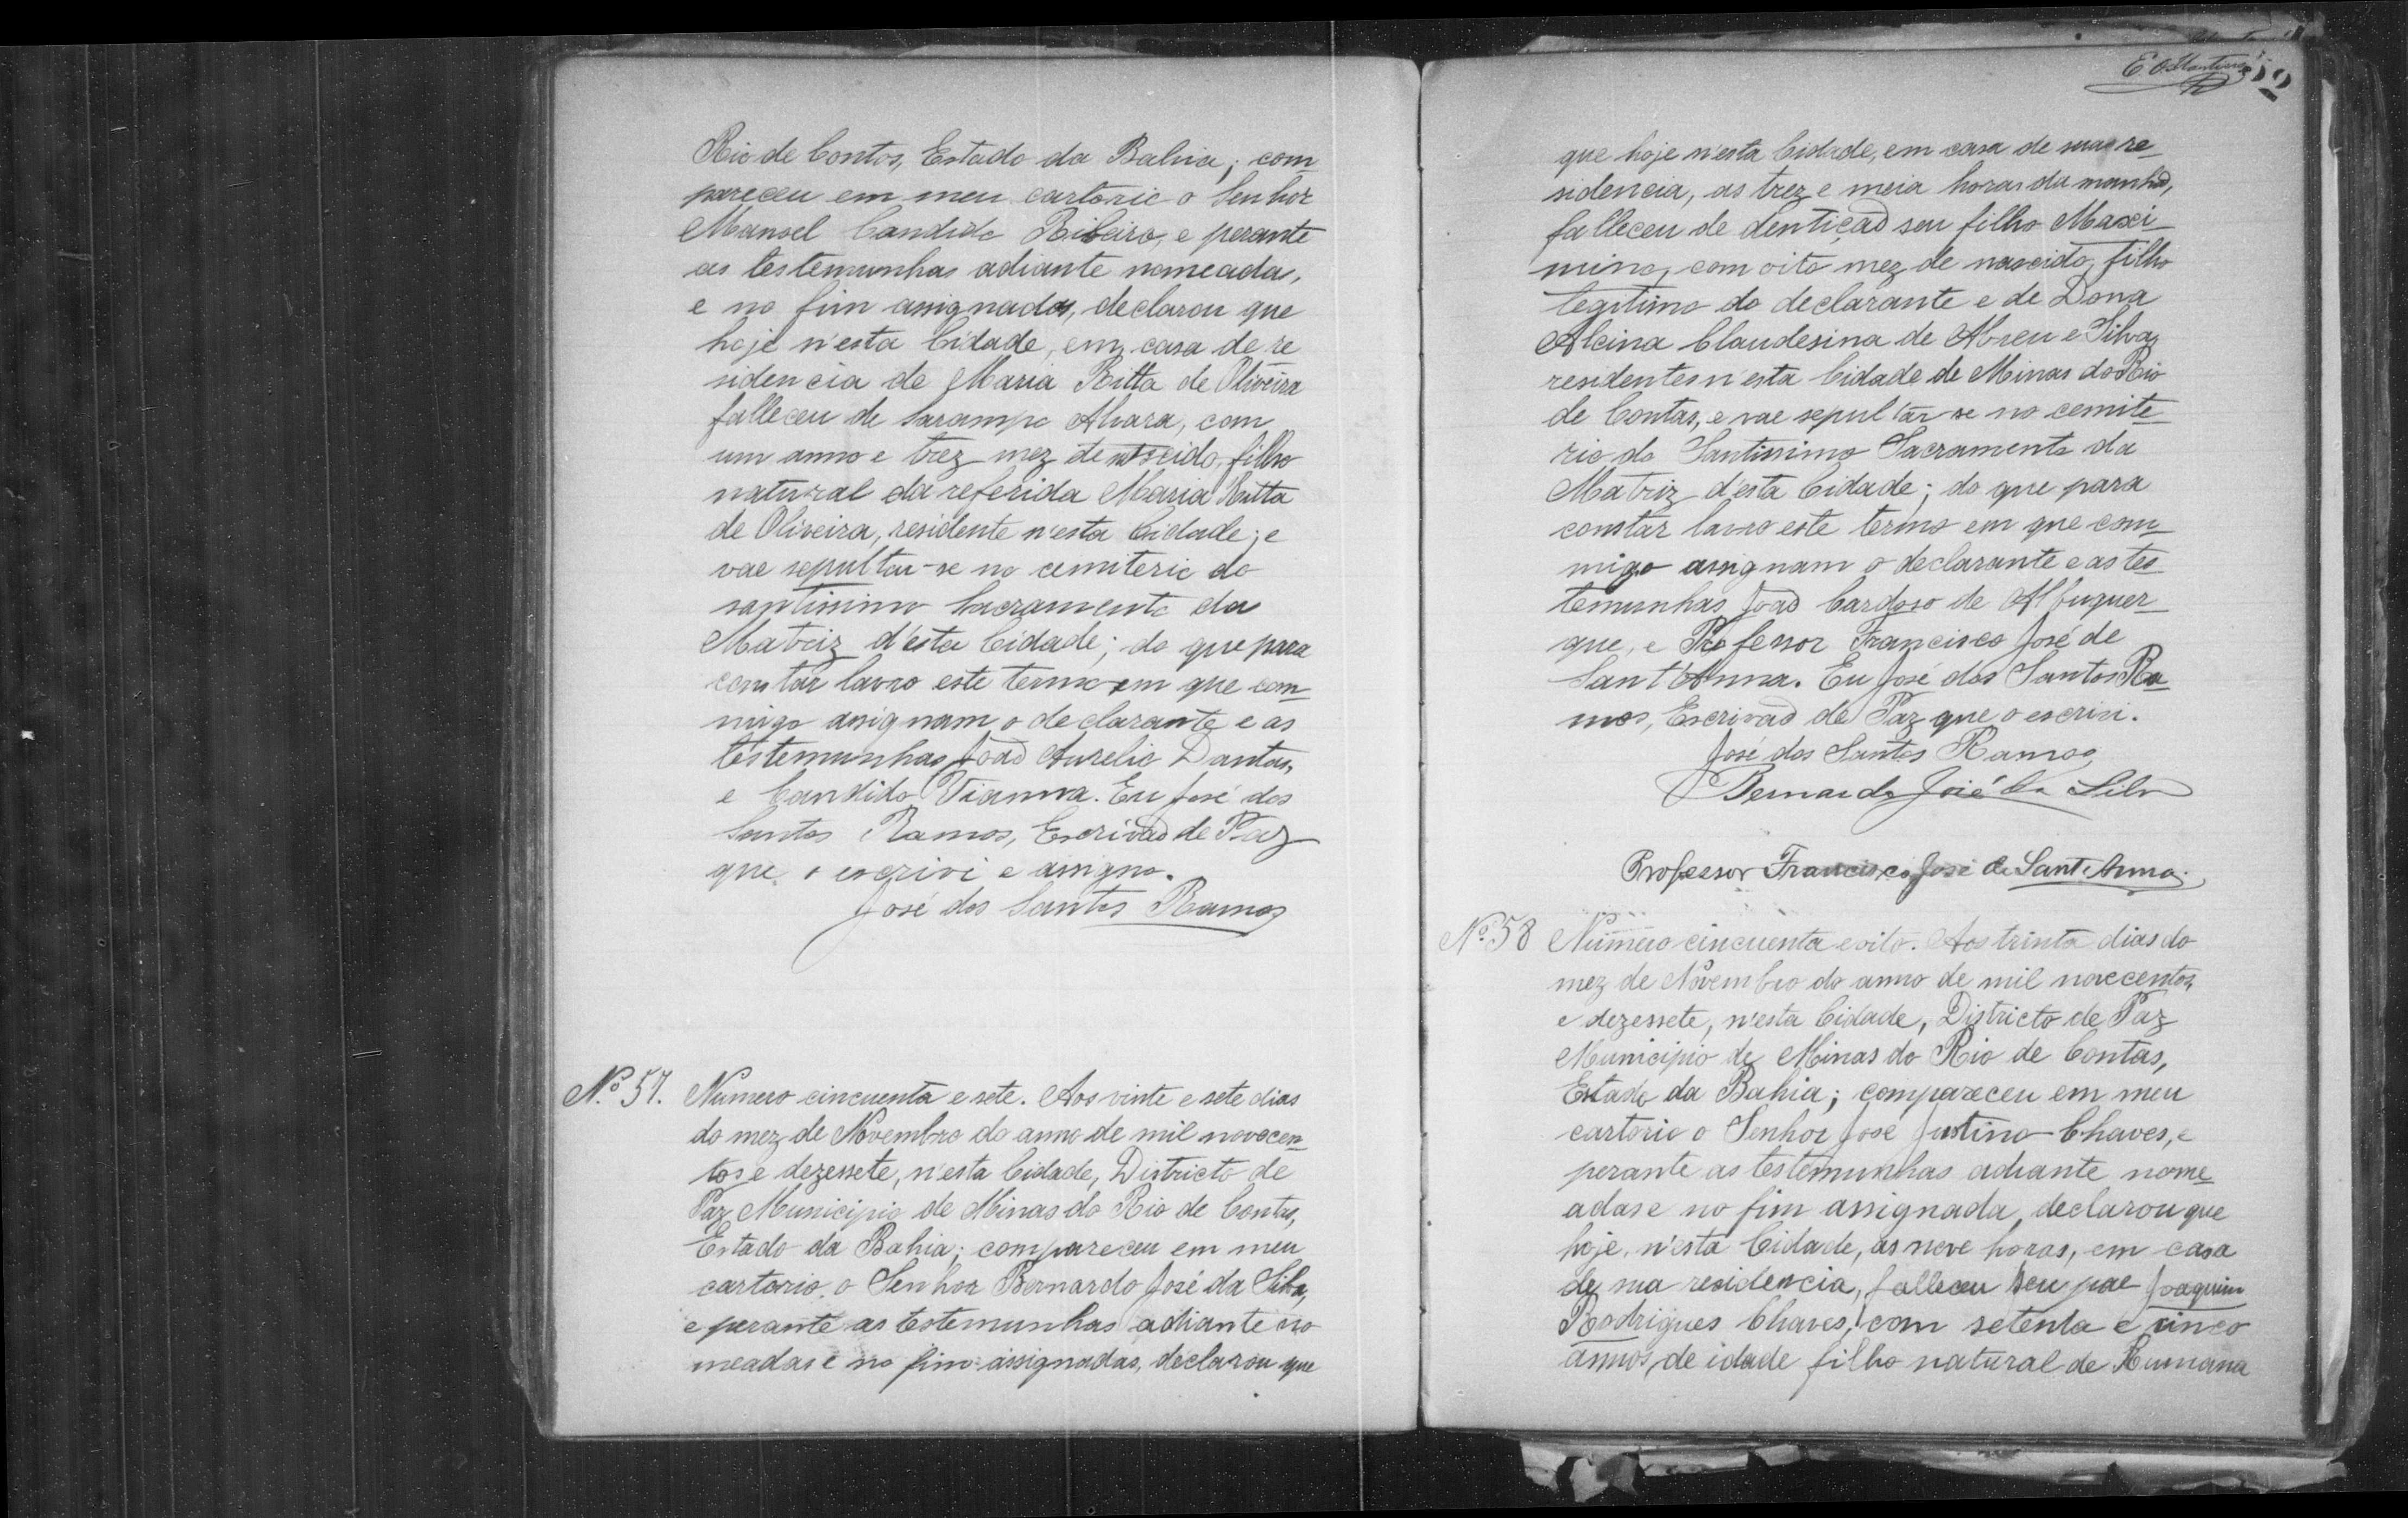 Rio de Contos, Estado da Bahia; com
pareceu em meu cartorio o Senhor
Manoel Candido Ribeiro, e perante
as testemunhas adiante nomeada,
e no fim assignadas, declarou que
hoje n'esta Cidade, em casa de re
sidencia de Maria Ritta de Oliveira
falleceu de Sarampo Alvara, com
um anno e trez mez de nascido, filho
natural da referida Maria Ritta
de Oliveira, residente n'esta Cidade; e
vae sepultar-se no cemiterio do
santissimo Sacramento da
Matriz d'esta Cidade; do que para
constar lavro este termo em que com
migo assignam o declarante e as
testemunhas João Aurelio Dantas,
e Candido Vianna. Eu José dos
Santos Ramos, Escrivão de Paz
que o escrivi e assigno.
José dos Santos Ramos
Nº 57. Numero cincuenta e sete. Aos vinte e sete dias
do mez de Novembro do anno de mil novocen
tos e dezessete, n'esta Cidade, Districto de
Paz Municipio de Minas do Rio de Contas,
Estado da Bahia; compareceu em meu
cartorio, o Senhor Bernardo José da Silva,
e perante as testemunhas adiante no
meadas e no fim assignadas, declarou que
que hoje n'esta Cidade, em casa de sua re
sidencia, as trez e meia horas da manhã,
falleceu de dentição seu filho Maxi
mino, com oito mez de nascido, filho
legitimo do declarante e de Dona
Alcina Claudesina de Abreu e Silva,
residentes n'esta Cidade de Minas do Rio
de Contas, e vae sepultar se no cemite
rio do Santissimo Sacramento da
Matriz d'esta Cidade; do que para
constar lavro este termo em que com
migo assignam o declarante e as tes
temunhas João Cardoso de Albuquer
que, e Professor Francisco José de
Sant'Anna. Eu José dos Santos Ra
mos, Escrivão de Paz que o escrivi.
José dos Santos Ramos
Bernardo José da Silva
Professor Francisco José de Sant'Anna.
Nº 58 Numero cincuenta e oito. Aos trinta dias do
mez de Novembro do anno de mil novecentos
e dezessete, n'esta Cidade, Districto de Paz
Municipio de Minas do Rio de Contas,
Estado da Bahia; compareceu em meu
cartorio o Senhor José Justino Chaves, e
perante as testemunhas adiante nome
adas e no fim assignada, declarou que
hoje, n'esta Cidade, as nove horas, em casa
de sua residencia, falleceu seu pae Joaquim
Rodrigues Chaves, com setenta e cinco
annos, de idade filho natural de Rumana